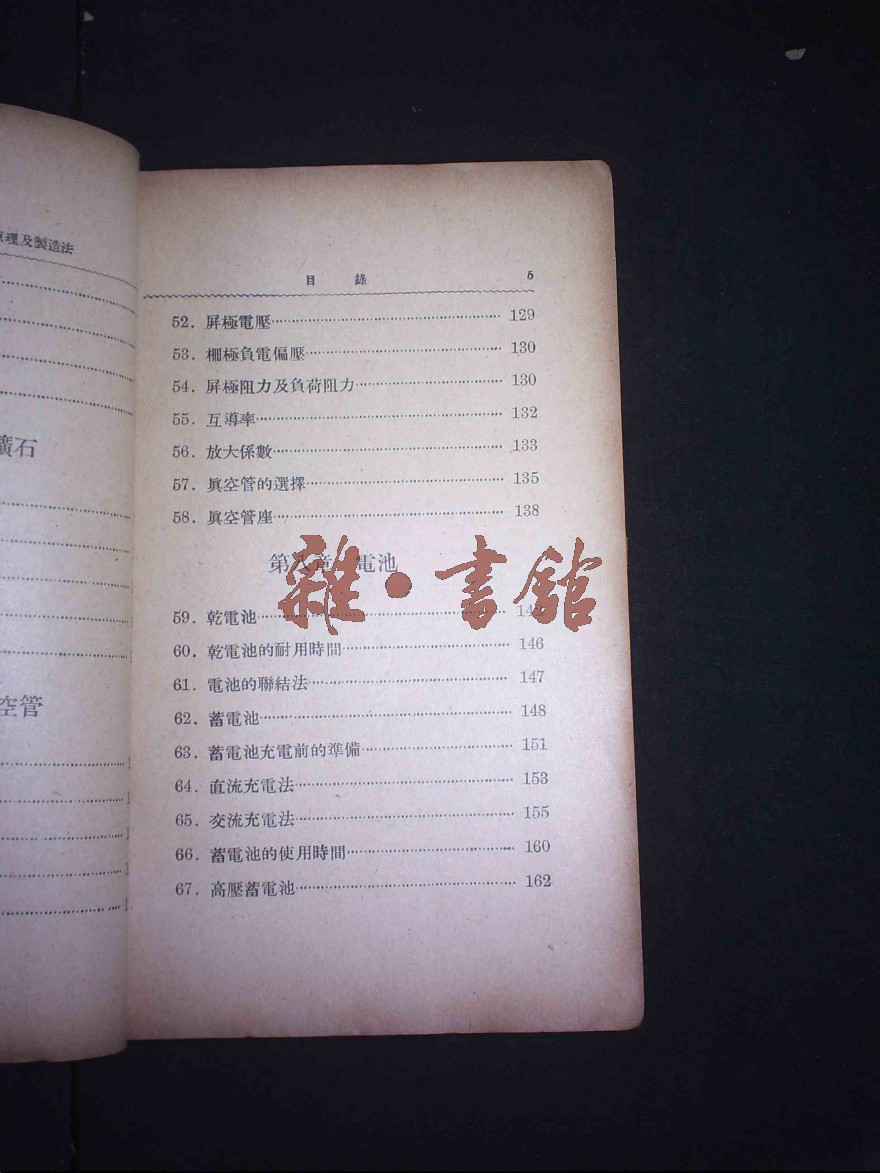 原理及製造法
礦石
空管
目錄 5
52. 屏極電壓 129
53. 柵極負電偏壓 130
54. 屏極阻力及負荷阻力 130
55. 互導率 132
56. 放大係數 133
57. 眞空管的選擇 135
58. 眞空管座 138
第八章 電池
雜·書館
59. 乾電池
60. 乾電池的耐用時間 146
61. 電池的聯結法 147
62. 蓄電池 148
63. 蓄電池充電前的準備 151
64. 直流充電法 153
65. 交流充電法 155
66. 蓄電池的使用時間 160
67. 高壓蓄電池 162